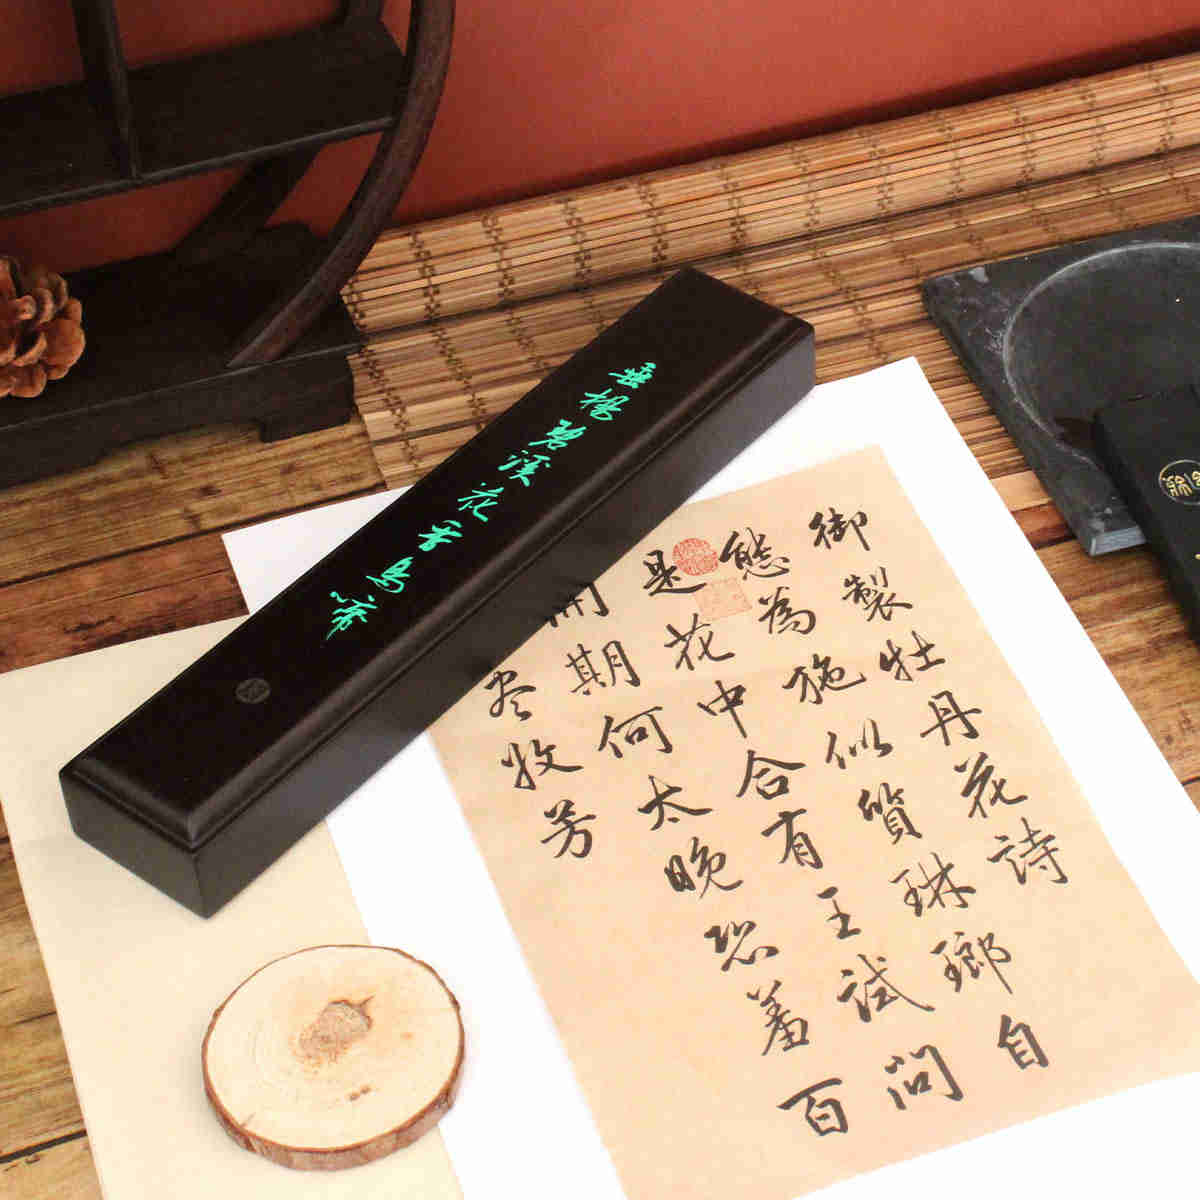 垂楊碧溪花香鳥啼
御製牡丹花詩
態為施似質琳瑯自
是花中合有王試問
開期何太晚恐羞百
尽收芳